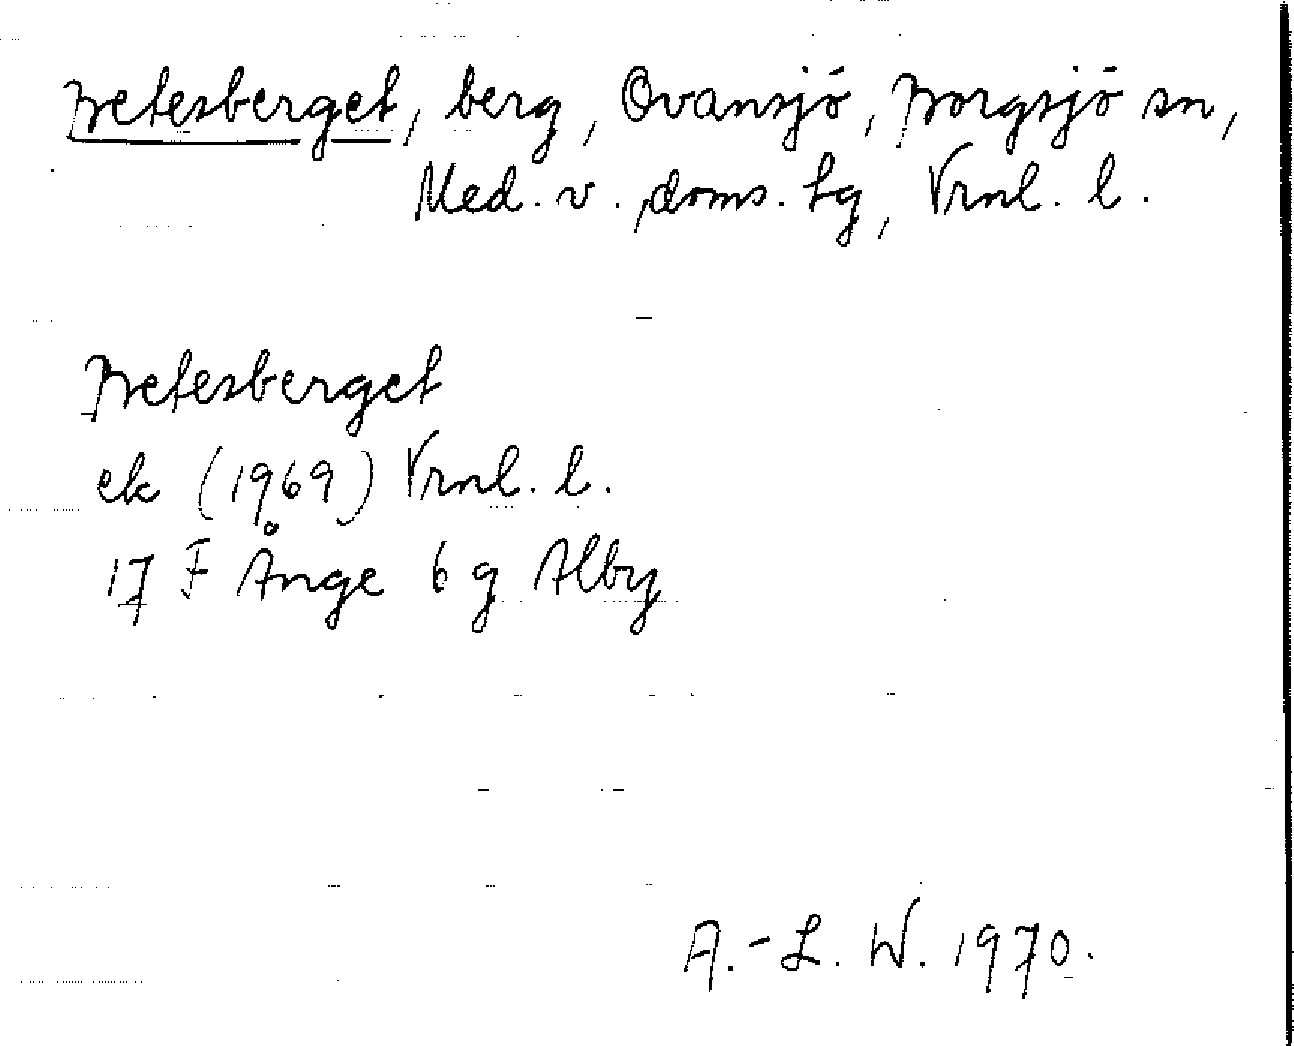 Betesberget, berg, Ovansjö, Borgsjö sn,
Med. v. doms. tg, Vrnl. l.
Betesberget
ek (1969) Vrnl. l.
17 F Ånge 6 g Alby
A.-L. W. 1970.